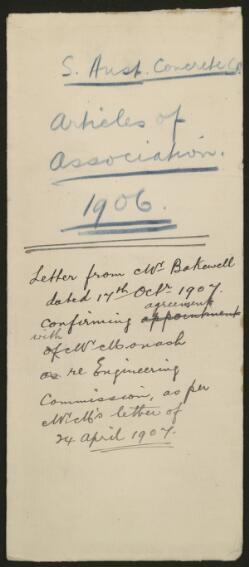 S. Aust. Concrete Co.
Articles of
Association.
1906.
Letter from Mr Bakewell
dated 17th Octr 1907.
agreement
confirming appointment
with
of Mr Monash
as re Engineering
Commission, as per
Mr M's letter of
24 April 1907.